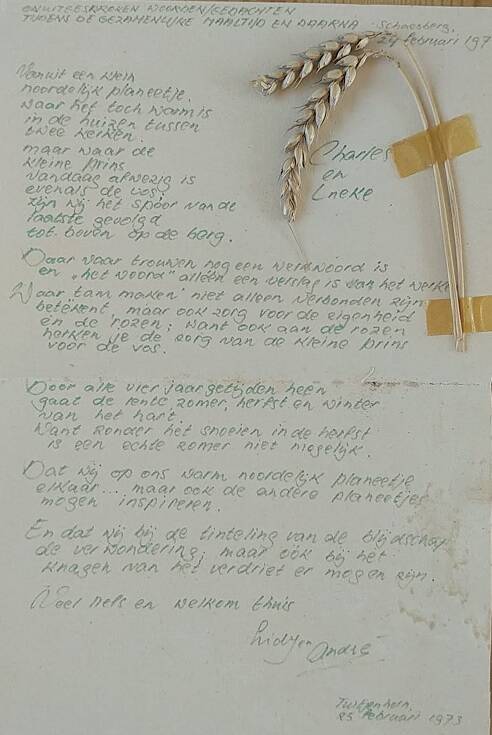 ONUITGESPROKEN WOORDEN/GEDACHTEN
TIJDENS DE GEZAMENLIJKE MAALTIJD EN DAARNA
Schoosberg,
24 februari 197
Vanuit een klein
noordelijk planeetje,
waar het toch warm is
in de huizen tussen
twee kerken.
maar waar de
kleine prins
vandaag afwezig is
evenals de vos,
zijn wij het spoor van de
laatste gevolgd
tot boven op de berg.
Charles
en
Ineke
Daar waar trouwen nog een werkwoord is
en "het woord" alleen een verslag is van het werken
Waar 'tam maken' niet alleen verbonden zijn
betekent, maar ook zorg voor de eigenheid
en de rozen; want ook aan de rozen
herken je de zorg van de kleine prins
voor de vos.
Door alle vier jaargetijden heen
gaat de lente zomer, herfst en winter
van het hart.
Want zonder het snoeien in de herfst
is een echte zomer niet mogelijk.
Dat wij op ons warm noordelijk planeetje
elkaar.... maar ook de andere planeetjes
mogen inspireren.
En dat wij bij de tinteling van de blijdschap
de verwondering, maar ook bij het
knagen van het verdriet er mogen zijn.
Veel liefs en welkom thuis
Lidy en André
25 februari 1973